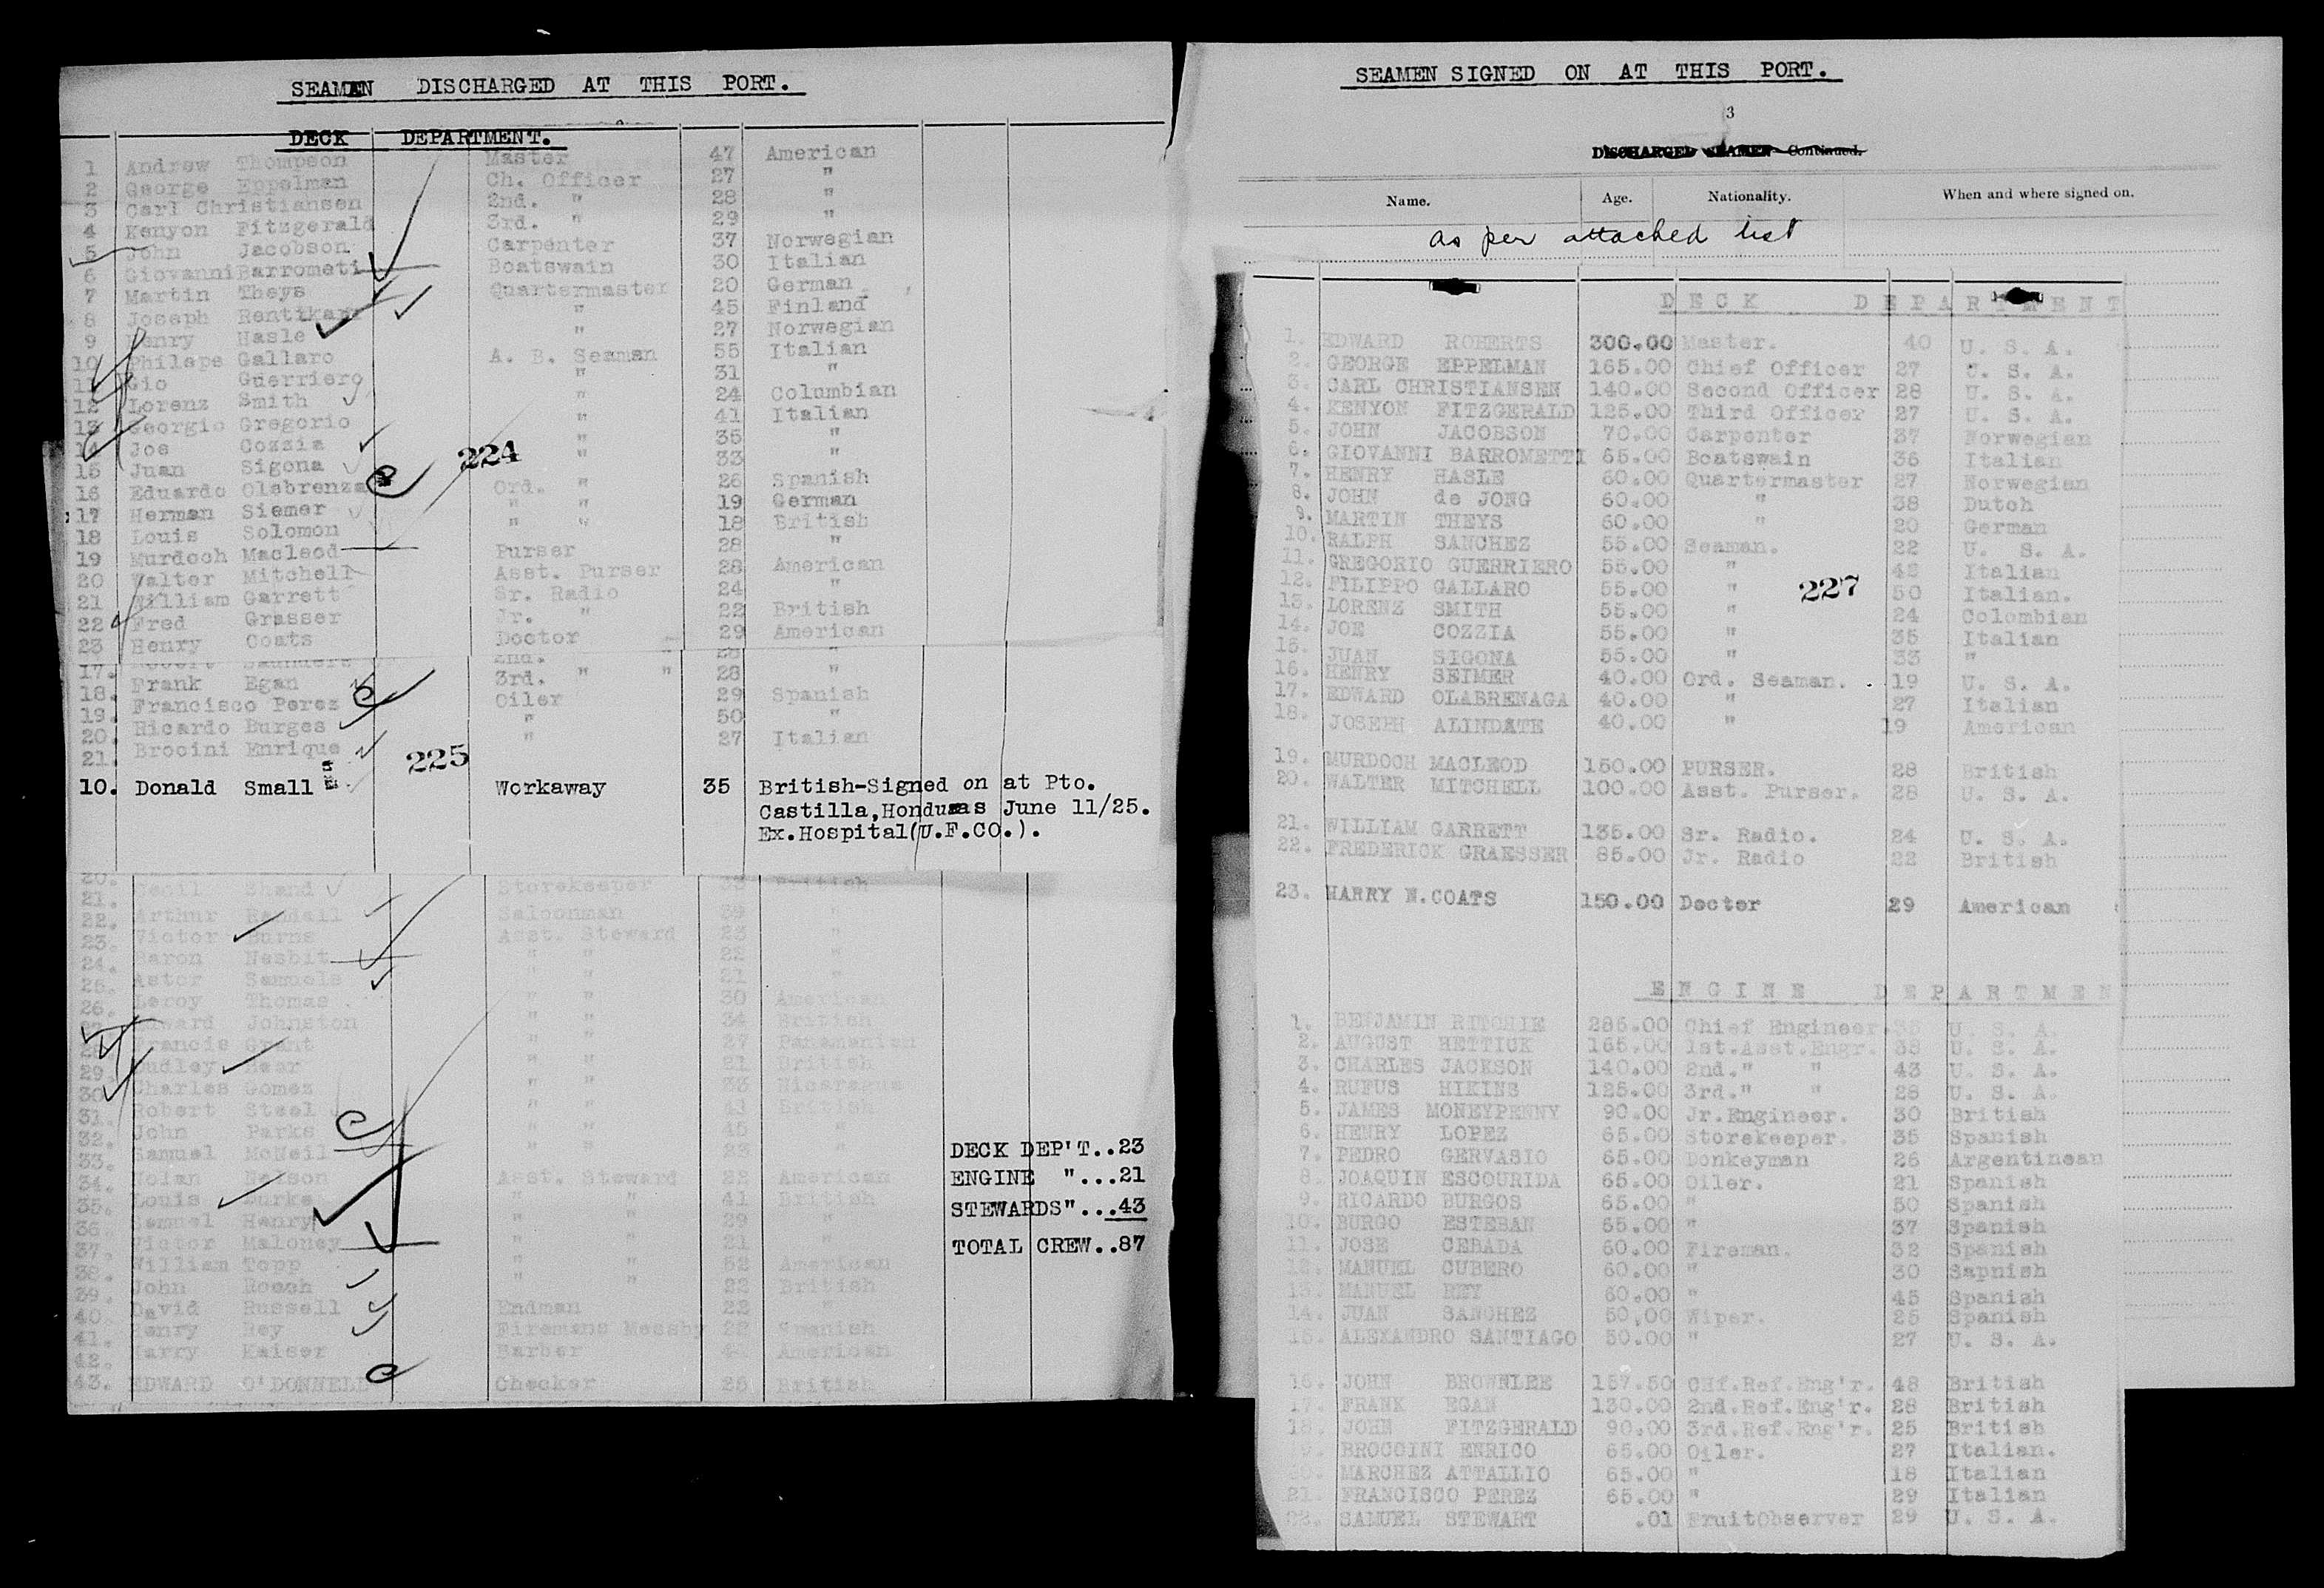 SEAMEN DISCHARGED AT THIS PORT.
DECK DEPARTMENT.
1 Andrew Thompson Master 47 American
2 George Eppelman Ch. Officer 27 "
3 Carl Christiansen 2nd. " 28 "
4 Kenyon Fitzgerald 3rd. " 29 "
5 John Jacobson Carpenter 37 Norwegian
6 Giovanni Barrometi Boatswain 30 Italian
7 Martin Theys Quartermaster 20 German
8 Joseph " 45 Finland
9 Henry Hasle " 27 Norwegian
10 Philepe Gallaro A. B. Seaman 55 Italian
11 Gio Guerriero " 31 "
12 Lorenz Smith " 24 Columbian
13 Georgio Gregorio " 41 Italian
14 Joe Cozzia " 35 "
15 Juan Sigona " 33 "
224
16 Eduardo Olabrenza Ord. " 26 Spanish
17 Herman Siemer " " 19 German
18 Louis Solomon " " 18 British
19 Murdoch Macleod Purser 28 "
20 Walter Mitchell Asst. Purser 28 American
21 William Garrett Sr. Radio 24 "
22 Fred Grasser Jr. " 22 British
23 Henry Coats Doctor 29 American
17. Saunders 2nd. 28 "
18. Frank Egan 3rd. " " 28 "
19. Francisco Perez Oiler 29 Spanish
20. Ricardo Burges " 50 "
21. Brocini Enrique " 27 Italian
225
10. Donald Small Workaway 35 British-Signed on at Pto.
Castilla,Honduras June 11/25.
Ex.Hospital(U.F.CO.).
20.
21. Cecil Shand Storekeeper 33 British
22. Arthur Randall Saloonman 39 "
23. Victor Burns Asst. Steward 23 "
24. Baron Nesbit " " 22 "
25. Astor Samuels " " 21 "
26. Leroy Thomas " " 30 American
Edward Johnston " " 34 British
28. Francis Grant " " 27 Panamanian
29. Dudley Bear " " 21 British
30. Charles Gomez " " 33 Nicaragua
31. Robert Steel " " 41 British
32. John Parks " " 45 "
33. Samuel McNeil " " 23
34. Nolan Nelson Asst. Steward 22 American
35. Louis Burke " " 41 British
36. Samuel Henry " " 29 "
37. Victor Maloney " " 21 "
38. William Topp " " 52 American
39. John Roach " " 22 British
40. David Russell Endman 22 "
41. Henry Rey Firemans Messby 22 Spanish
42. Harry Kaiser Barber American
43. EDWARD O'DONNELL Checker 26 British
DECK DEP'T..23
ENGINE "...21
STEWARDS"...43
TOTAL CREW..87
SEAMEN SIGNED ON AT THIS PORT.
3
DISCHARGED SEAMEN—Continued.
Name. Age. Nationality. When and where signed on.
as per attached list
DECK DEPARTMENT
1. EDWARD ROBERTS 300.00 Master. 40 U. S. A.
2. GEORGE EPPELMAN 165.00 Chief Officer 27 U. S. A.
3. CARL CHRISTIANSEN 140.00 Second Officer 28 U. S. A.
4. KENYON FITZGERALD 125.00 Third Officer 27 U. S. A.
5. JOHN JACOBSON 70.00 Carpenter 37 Norwegian
6. GIOVANNI BARROMETTI 65.00 Boatswain 36 Italian
7. HENRY HASLE 60.00 Quartermaster 27 Norwegian
8. JOHN de JONG 60.00 " 38 Dutch
9. MARTIN THEYS 60.00 " 20 German
10. RALPH SANCHEZ 55.00 Seaman. 22 U. S. A.
11. GREGORIO GUERRIERO 55.00 " 42 Italian
12. FILIPPO GALLARO 55.00 " 50 Italian.
227
13. LORENZ SMITH 55.00 " 24 Colombian
14. JOE COZZIA 55.00 " 35 Italian
15. JUAN SIGONA 55.00 " 33 "
16. HENRY SEIMER 40.00 Ord. Seaman. 19 U. S. A.
17. EDWARD OLABRENAGA 40.00 " 27 Italian
18. JOSEPH ALINDATE 40.00 " 19 American
19. MURDOCH MACLEOD 150.00 PURSER. 28 British
20. WALTER MITCHELL 100.00 Asst. Purser. 28 U. S. A.
21. WILLIAM GARRETT 135.00 Sr. Radio. 24 U. S. A.
22. FREDERICK GRAESSER 85.00 Jr. Radio 22 British
23. HARRY N.COATS 150.00 Doctor 29 American
ENGINE DEPARTMEN
1. BENJAMIN RITCHIE 286.00 Chief Engineer. U. S. A.
2. AUGUST HETTICK 165.00 1st.Asst.Engr. 38 U. S. A.
3. CHARLES JACKSON 140.00 2nd." " 43 U. S. A.
4. RUFUS HIKINS 125.00 3rd." " 28 U. S. A.
5. JAMES MONEYPENNY 90.00 Jr.Engineer. 30 British
6. HENRY LOPEZ 65.00 Storekeeper. 35 Spanish
7. PEDRO GERVASIO 65.00 Donkeyman 26 Argentinean
8. JOAQUIN ESCOURIDA 65.00 Oiler. 21 Spanish
9. RICARDO BURGOS 65.00 " 50 Spanish
10. BURGO ESTEBAN 65.00 " 37 Spanish
11. JOSE CEBADA 60.00 Fireman. 32 Spanish
12. MANUEL CUBERO 60.00 " 30 Sapnish
13. MANUEL REY 60.00 " 45 Spanish
14. JUAN SANCHEZ 50,00 Wiper. 25 Spanish
15. ALEXANDRO SANTIAGO 50.00 " 27 U. S. A.
16. JOHN BROWNLEE 157.50 CHf.Ref.Eng'r. 48 British
17. FRANK EGAN 130.00 2nd.Ref.Eng'r. 28 British
18. JOHN FITZGERALD 90.00 3rd.Ref.Eng'r. 25 British
19. BROCCINI ENRICO 65.00 Oiler. 27 Italian.
20. MARCHEZ ATTALLIO 65.00 " 18 Italian
21. FRANCISCO PEREZ 65.00 " 29 Italian
22. SAMUEL STEWART .01 FruitObserver 29 U. S. A.